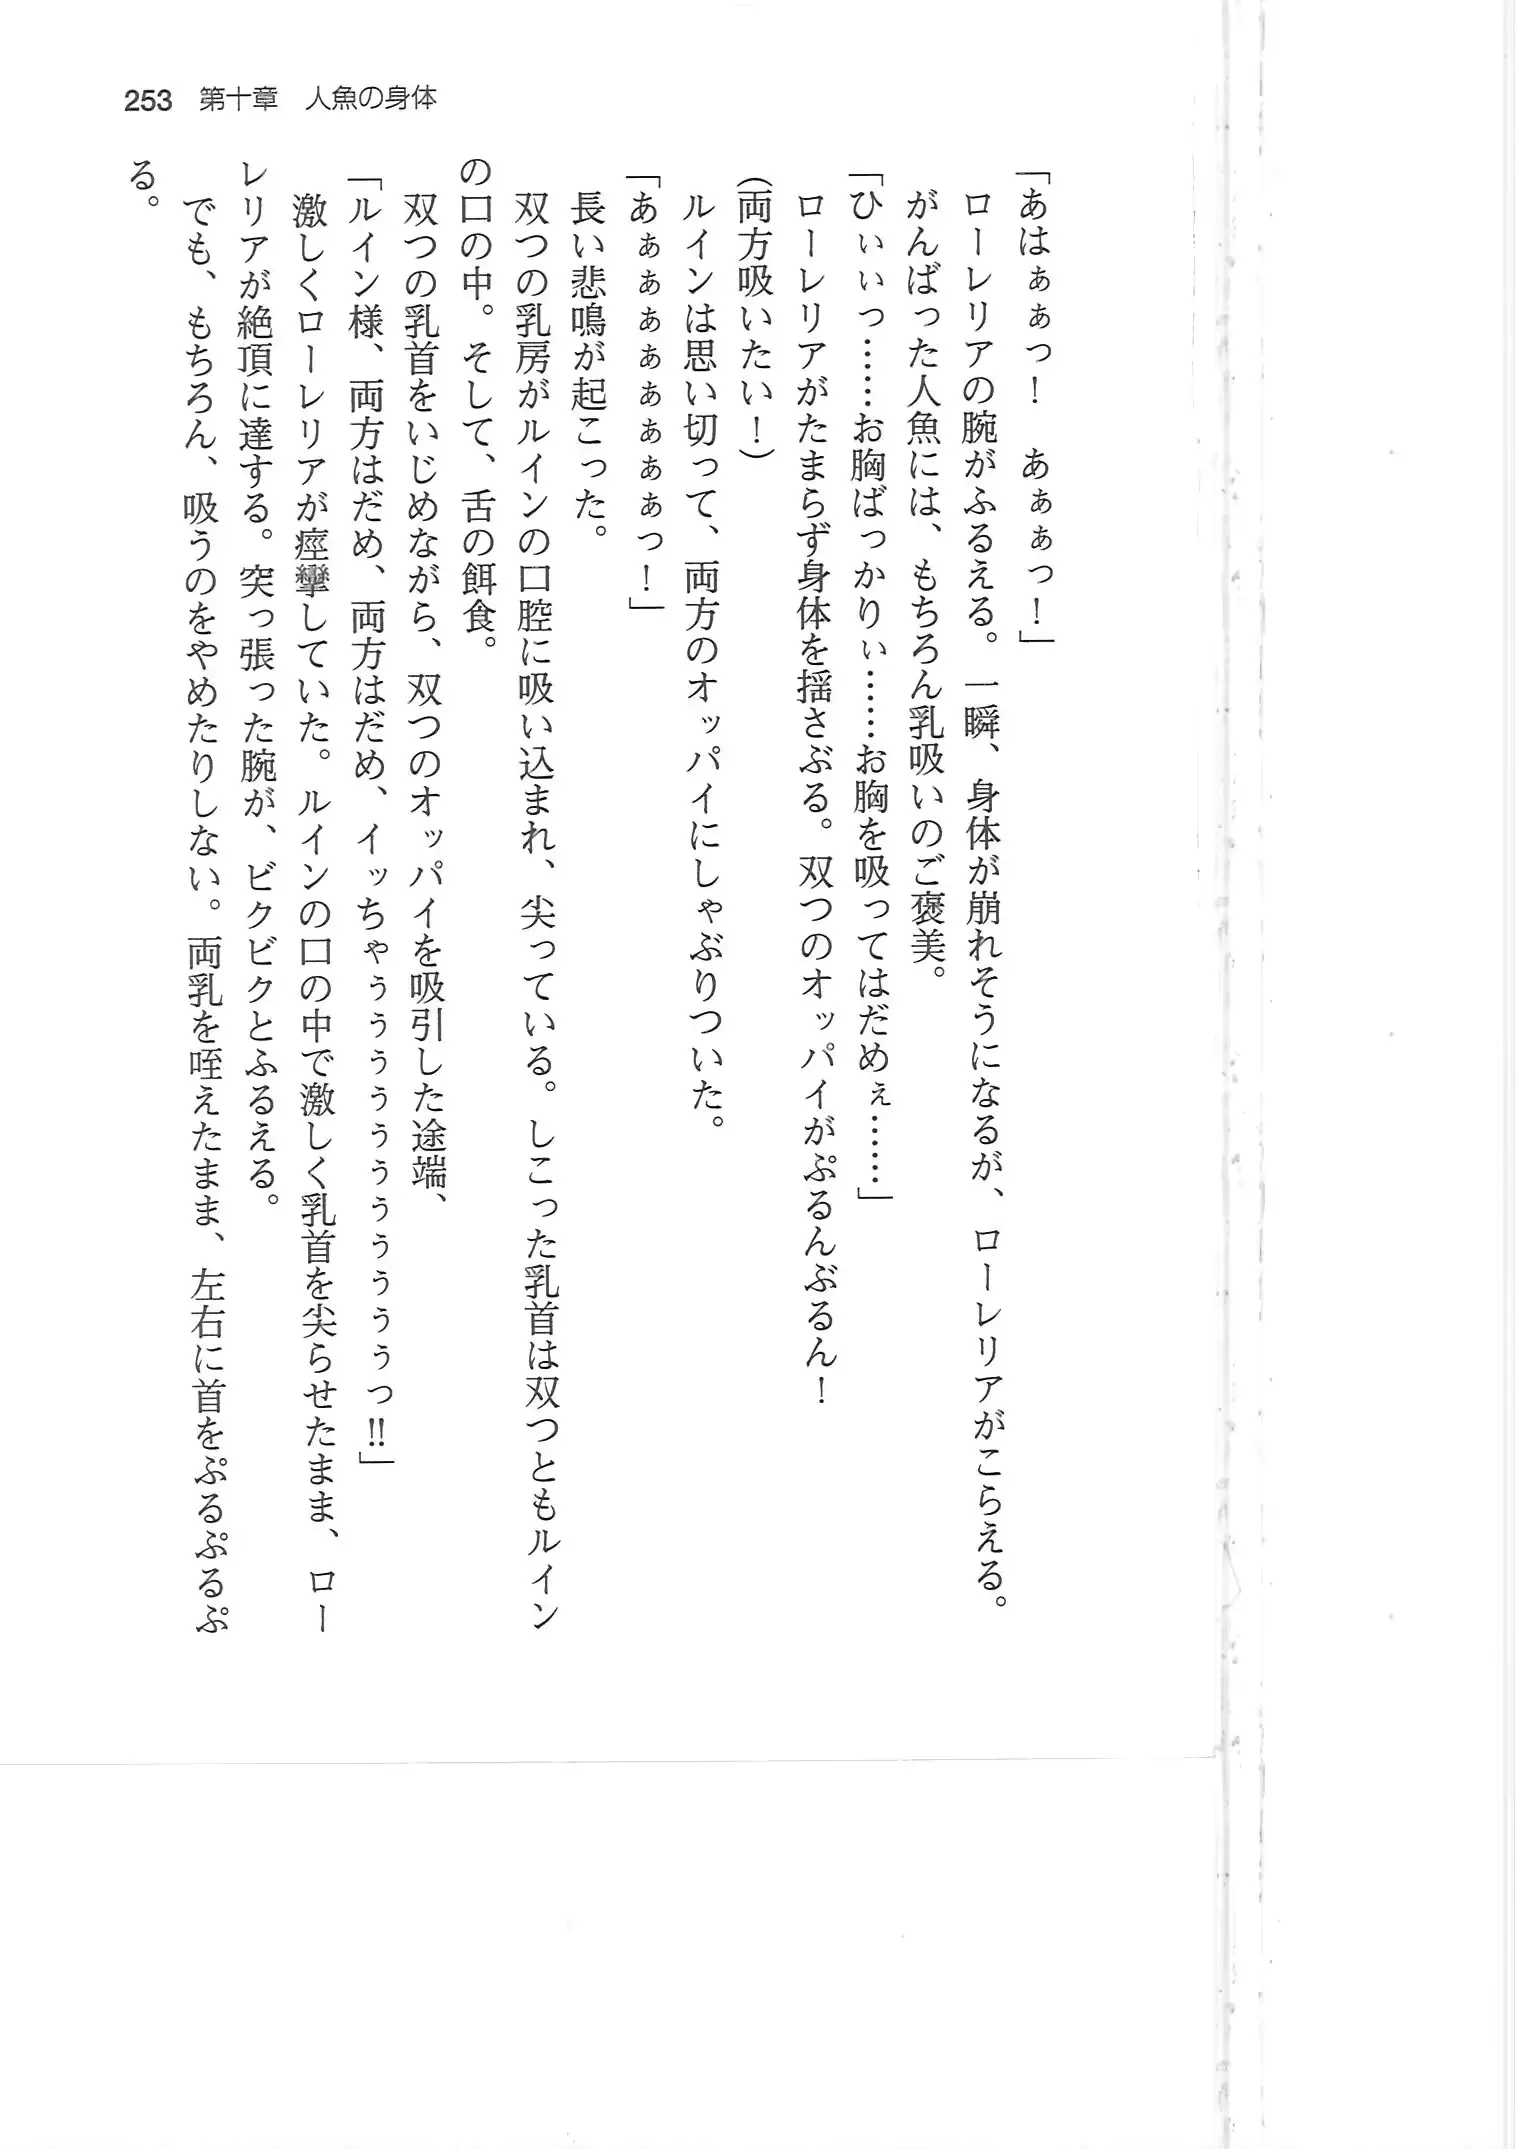 253 第十章 人魚の身体
「あはぁぁっ！ あぁぁっ！」
ローレリアの腕がふるえる。一瞬、身体が崩れそうになるが、ローレリアがこらえる。
がんばった人魚には、もちろん乳吸いのご褒美。
「ひぃぃっ……お胸ばっかりぃ……お胸を吸ってはだめぇ……」
ローレリアがたまらず身体を揺さぶる。双つのオッパイがぷるんぷるん！
（両方吸いたい！）
ルインは思い切って、両方のオッパイにしゃぶりついた。
「あぁぁぁぁぁぁぁぁっ！」
長い悲鳴が起こった。
双つの乳房がルインの口腔に吸い込まれ、尖っている。しこった乳首は双つともルイン
の口の中。そして、舌の餌食。
双つの乳首をいじめながら、双つのオッパイを吸引した途端、
「ルイン様、両方はだめ、両方はだめ、イッちゃぅぅぅぅぅぅぅぅぅぅぅっ!!」
激しくローレリアが痙攣していた。ルインの口の中で激しく乳首を尖らせたまま、ロー
レリアが絶頂に達する。突っ張った腕が、ビクビクとふるえる。
でも、もちろん、吸うのをやめたりしない。両乳を咥えたまま、左右に首をぷるぷるぷ
る。